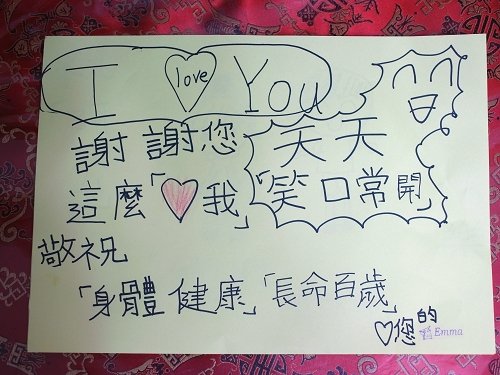 I love You
謝謝您
這麼「♥我」
天天
「笑口常開」
敬祝
「身體健康」「長命百歲」
♡您的
Emma